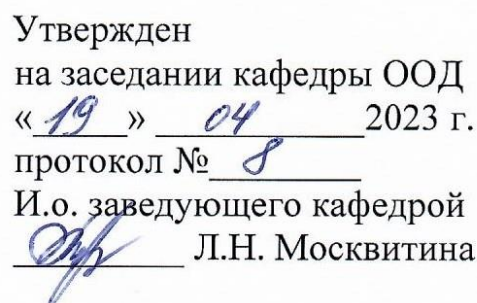 Утвержден
на заседании кафедры ООД
«19» 04 2023 г.
протокол № 8
И.о. заведующего кафедрой
Л.Н. Москвитина